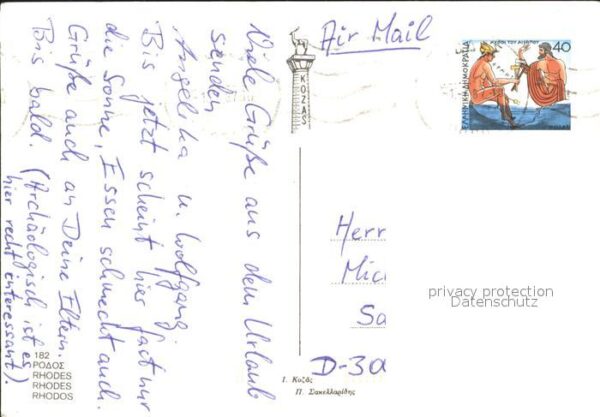 Viele Grüße aus dem Urlaub
senden
Angelika u. Wolfgang.
Bis jetzt scheint hier fast nur
die Sonne, Essen schmeckt auch.
Grüße auch an Deine Eltern.
Bis bald. (Archäologisch ist es
hier recht interessant).
182
ΡΟΔΟΣ
RHODES
RHODES
RHODOS
Air Mail
KOZAS
ΜΥΘΟΙ ΤΟΥ ΑΙΣΩΠΟΥ
40
ΕΛΛΗΝΙΚΗ ΔΗΜΟΚΡΑΤΙΑ
HELLAS
Herr
Mic
Sa
D-30
privacy protection
Datenschutz
Ι. Κοζάς
Π. Σακελλαρίδης